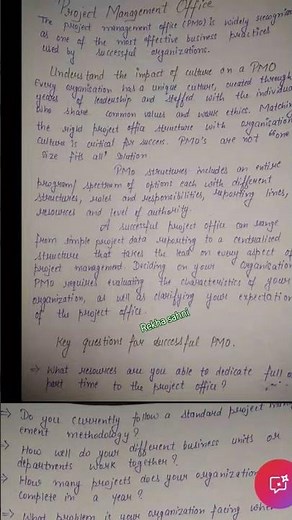 Project Management Office
The project management office (PMO) is widely recognise
as one of the most effective business practices
used by successful organizations.
Understand the impact of culture on a PMO
Every organisation has a unique culture, created through
years of leadership and staffed with the individual
who share common values and work ethics. Matching
the right project office structure with organisation
culture is critical for success. PMO's are not "one
size fits all" solution
PMO structures includes an entire
program/ spectrum of options each with different
structures, roles and responsibilities, reporting lines,
resources and level of authority.
A successful project office can range
from simple project data reporting to a centralised
structure that takes the lead on every aspect of
project management Deciding on your organisation
PMO requires evaluating the characteristics of your
organization, as well as clarifying your expectation
of the project office.
Rekha sahni
Key questions for successful PMO.
⇒ What resources are you able to dedicate full or
part time to the project office?
⇒ Do you currently follow a standard project man
ement methodology?
⇒ How well do your different business units or
departments work together?
⇒ How many projects does your organization
complete in a year?
⇒ What problem is your organization facing when